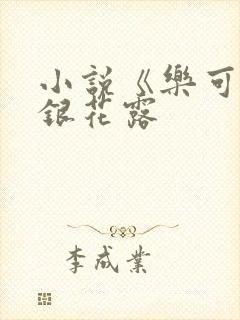 小説《樂可
銀花露
李成業